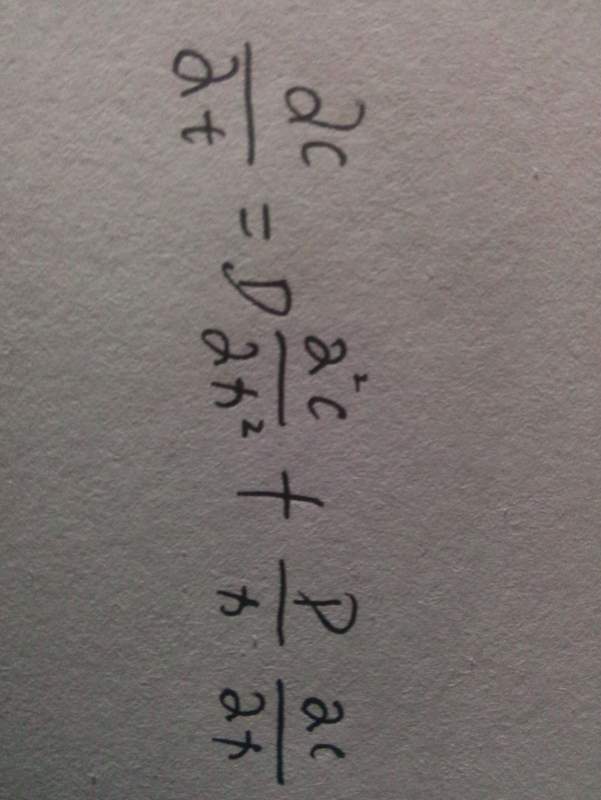 ∂c/∂t = D ∂²c/∂r² + D/r ∂c/∂r